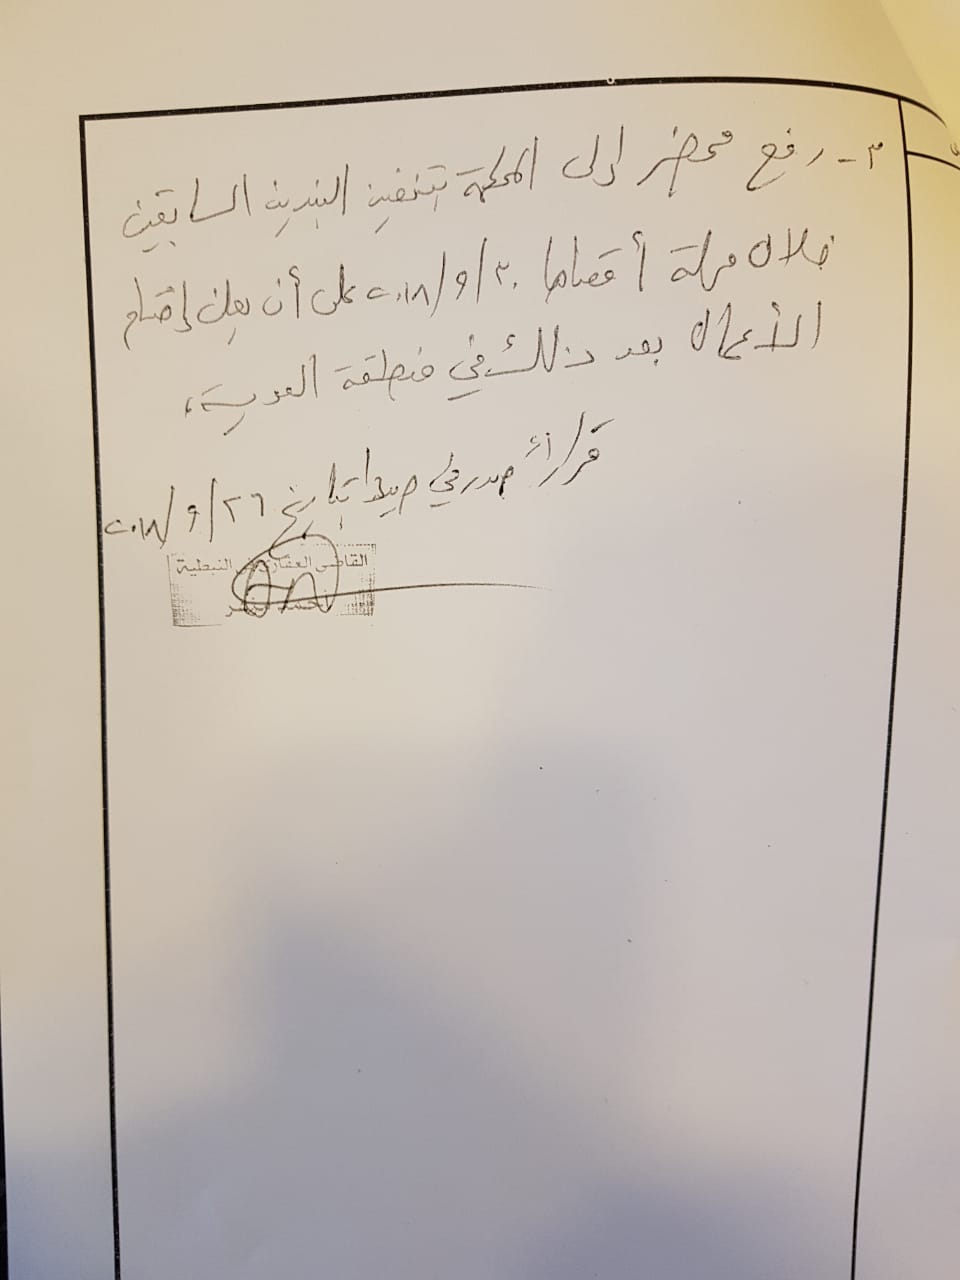 ٣- رفع محضر إلى المحكمة بتنفيذ البندين السابقين
خلال مهلة أقصاها ٣٠/٩/٢٠١٨ على أن يعلن اختتام
الأعمال بعد ذلك في منطقة العديسة،
قراراً صدر في صيدا بتاريخ ٢٦/٩/٢٠١٨
القاضي العقاري في النبطية